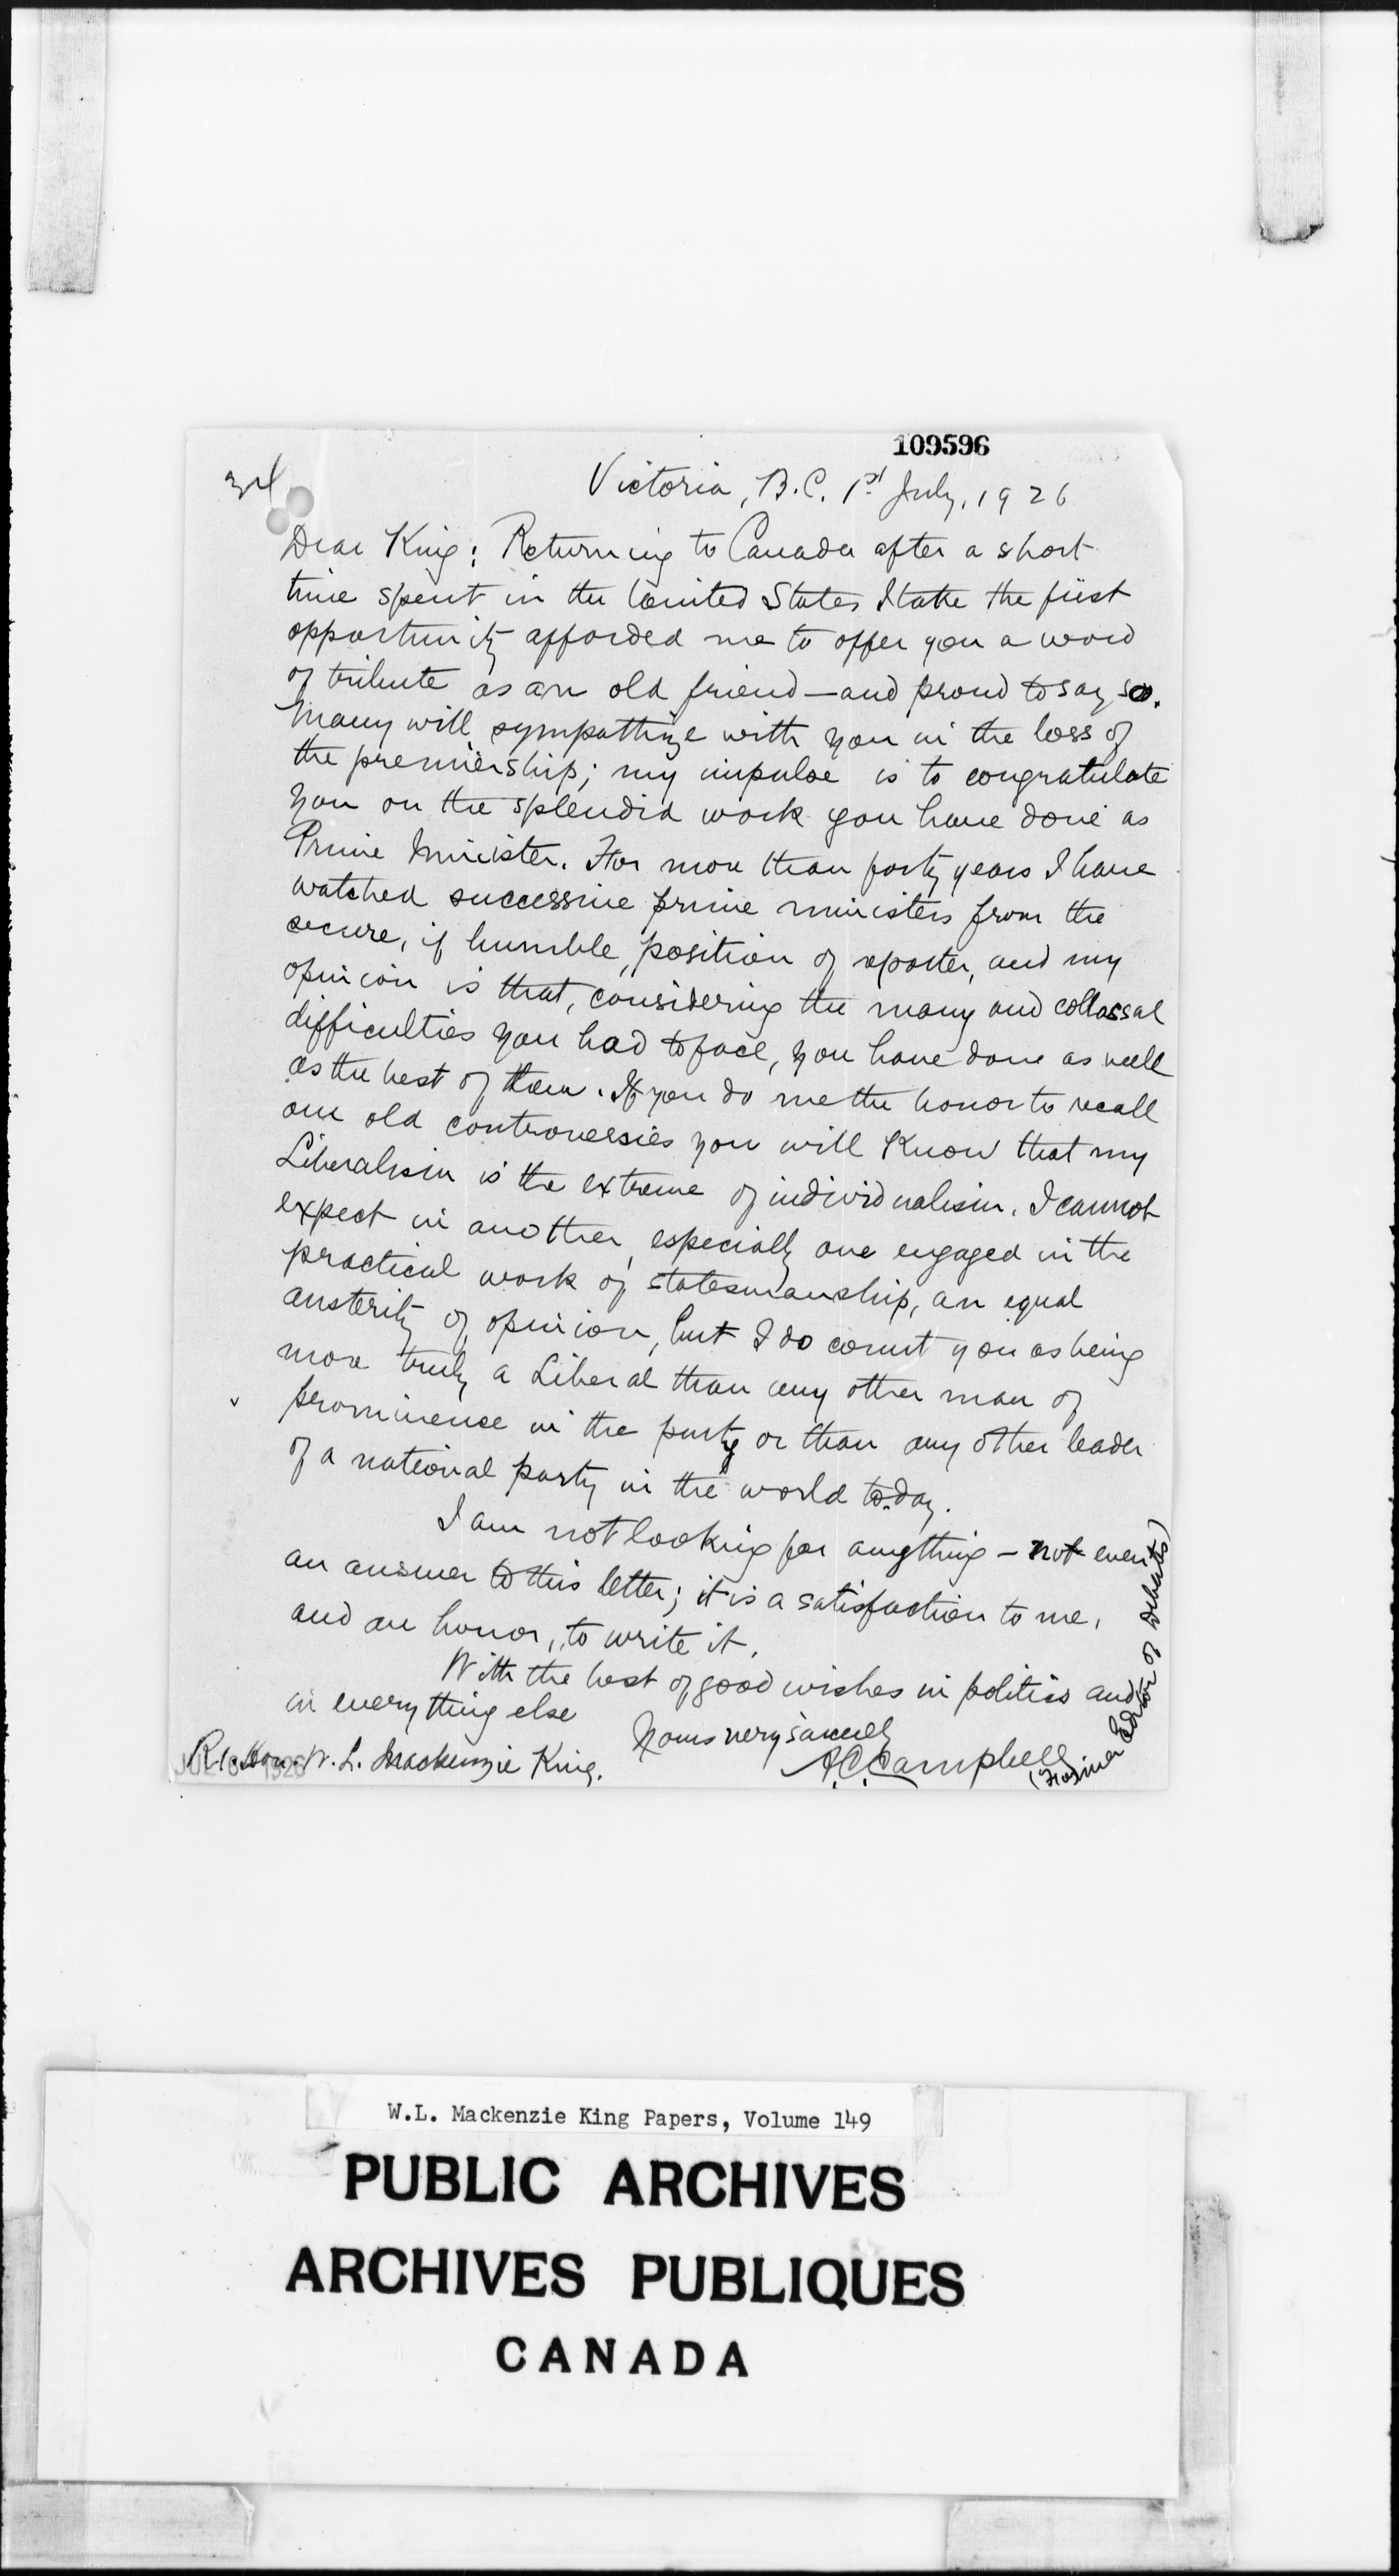 109596
Victoria, B.C. 1st July, 1926
Dear King: Returning to Canada after a short
time spent in the United States I take the first
opportunity afforded me to offer you a word
of tribute as an old friend—and proud to say so.
Many will sympathize with you in the loss of
the premiership; my impulse is to congratulate
you on the splendid work you have done as
Prime Minister. For more than forty years I have
watched successive prime ministers from the
secure, if humble, position of reporter, and my
opinion is that, considering the many and collassal
difficulties you had to face, you have done as well
as the best of them. If you do me the honor to recall
our old controversies you will know that my
Liberalism is the extreme of individualism. I cannot
expect in another, especially one engaged in the
practical work of statesmanship, an equal
austerity of opinion, but I do count you as being
more truly a Liberal than any other man of
prominence in the party or than any other leader
of a national party in the world to-day.
I am not looking for anything – not even
an answer to this letter; it is a satisfaction to me,
and an honor, to write it.
With the best of good wishes in politics and
in everything else
Yours very sincerely
A.C. Campbell
(Former Editor of Debates)
Rt. Hon. W. L. Mackenzie King.
W.L. Mackenzie King Papers, Volume 149
PUBLIC ARCHIVES
ARCHIVES PUBLIQUES
CANADA